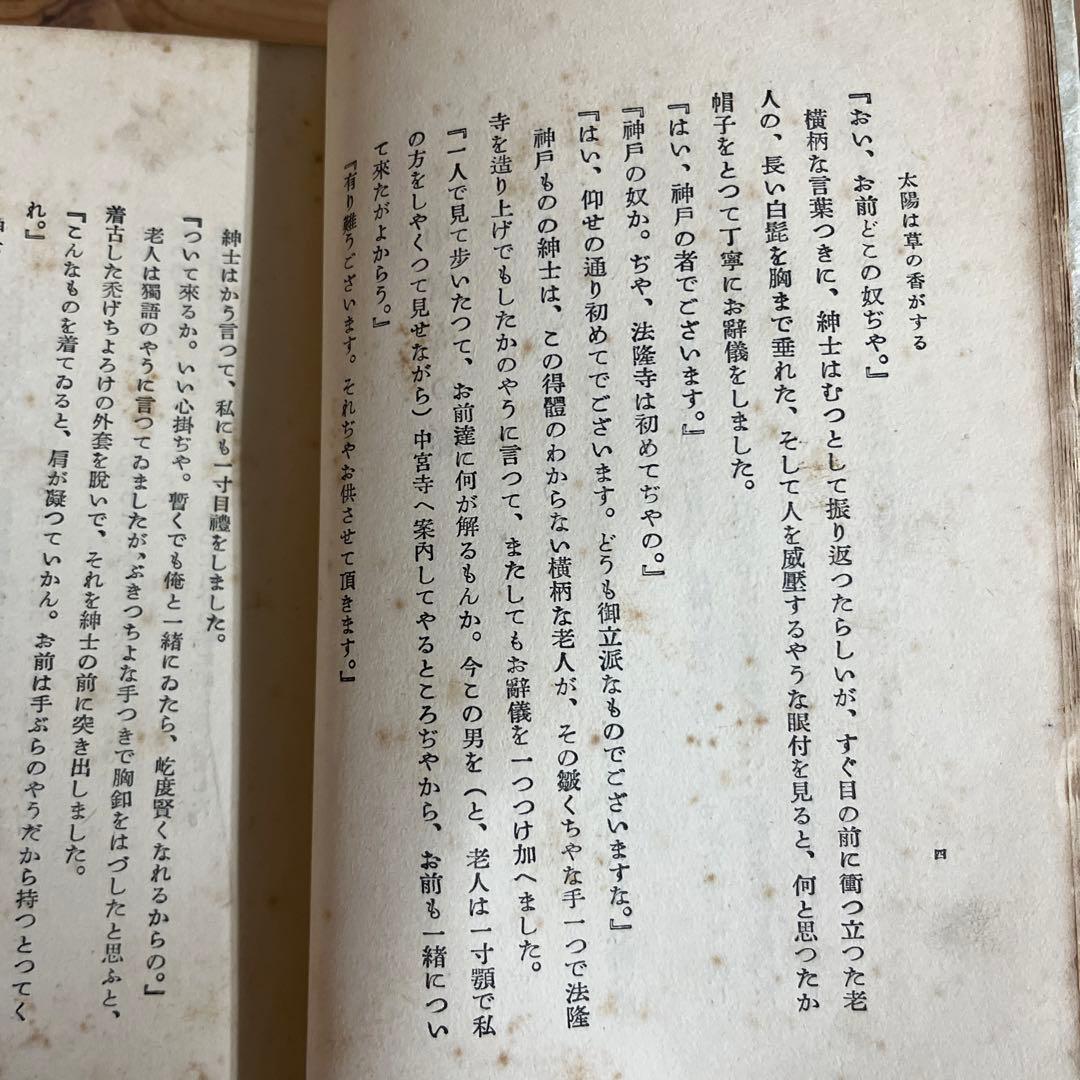 太陽は草の香がする
四
『おい、お前どこの奴ぢや。』
橫柄な言葉つきに、紳士はむつとして振り返つたらしいが、すぐ目の前に衝つ立つた老
人の、長い白髭を胸まで垂れた、そして人を威壓するやうな眼付を見ると、何と思つたか
帽子をとつて丁寧にお辭儀をしました。
『はい、神戶の者でございます。』
『神戶の奴か。ぢや、法隆寺は初めてぢやの。』
『はい、仰せの通り初めてでございます。どうも御立派なものでございますな。』
神戶ものの紳士は、この得體のわからない橫柄な老人が、その皺くちやな手一つで法隆
寺を造り上げでもしたかのやうに言つて、またしてもお辭儀を一つつけ加へました。
『一人で見て步いたつて、お前達に何が解るもんか。今この男を（と、老人は一寸顎で私
の方をしやくつて見せながら）中宮寺へ案內してやるところぢやから、お前も一緒につい
て來たがよからう。』
『有り難うございます。それぢやお供させて頂きます。』
紳士はかう言つて、私にも一寸目禮をしました。
『ついて來るか。いい心掛ぢや。暫くでも俺と一緒にゐたら、屹度賢くなれるからの。』
老人は獨語のやうに言つてゐましたが、ぶきつちよな手つきで胸釦をはづしたと思ふと、
着古した禿げちよろけの外套を脫いで、それを紳士の前に突き出しました。
『こんなものを着てゐると、肩が凝つていかん。お前は手ぶらのやうだから持つとつてく
れ。』